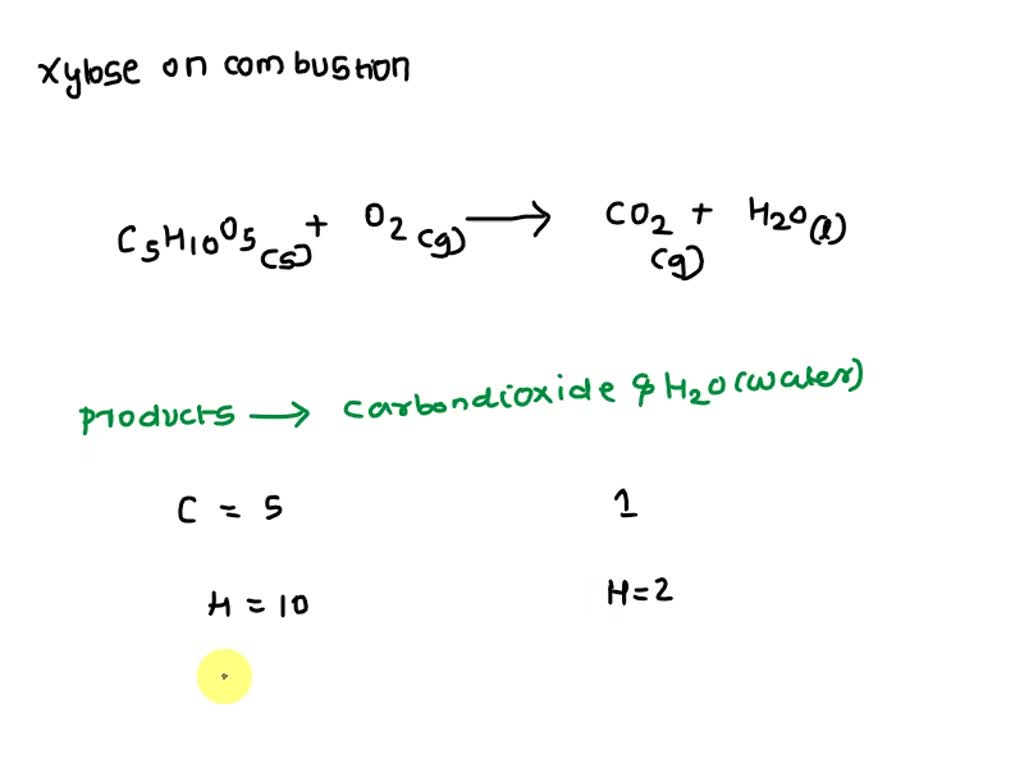 xylose on combustion
C5H10O5(s) + O2(g) → CO2(g) + H2O(l)
products → carbondioxide & H2O (water)
C = 5 1
H = 10 H=2